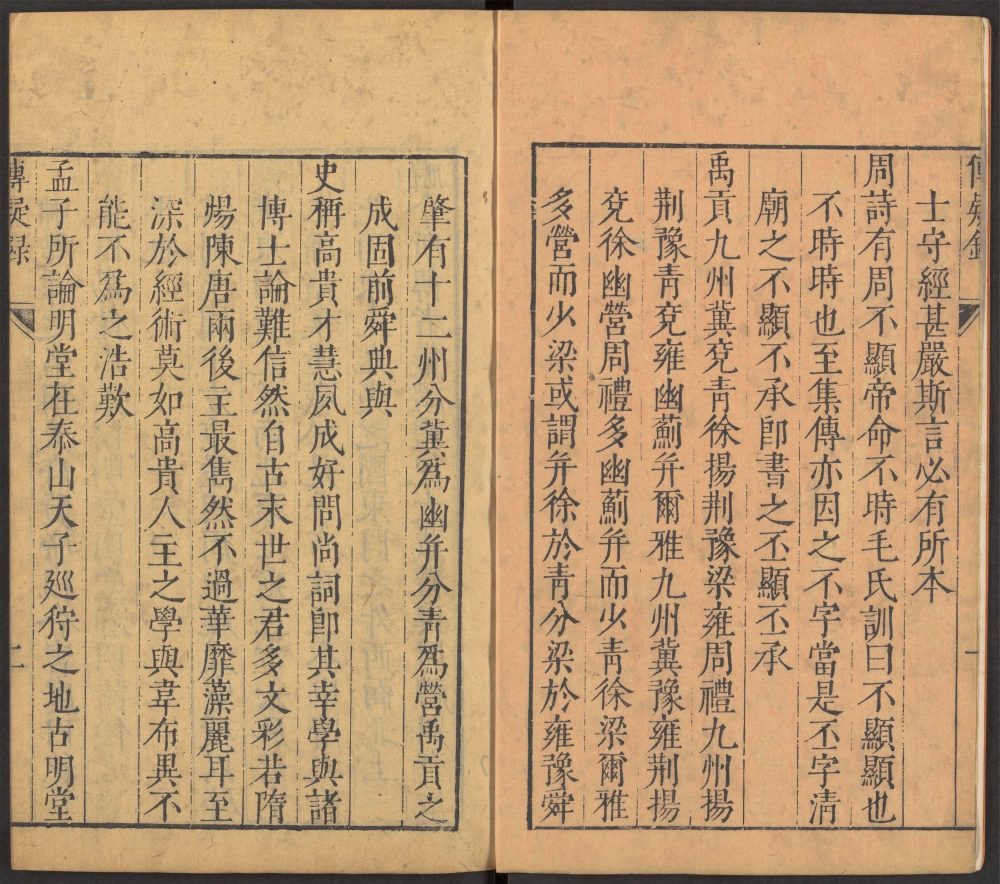 傳疑錄
一
士守經甚嚴斯言必有所本
周詩有周不顯帝命不時毛氏訓曰不顯顯也
不時時也至集傳亦因之不字當是丕字清
廟之不顯不承卽書之丕顯丕承
禹貢九州冀兗青徐揚荆豫梁雍周禮九州揚
荆豫靑兗雍幽薊幷爾雅九州冀豫雍荆揚
兗徐幽營周禮多幽薊幷而少靑徐梁爾雅
多營而少梁或謂幷徐於靑分梁於雍豫舜
肇有十二州分冀爲幽幷分靑爲營禹貢之
成固前舜典與
史稱高貴才慧夙成好問尚詞卽其幸學與諸
博士論難信然自古末世之君多文彩若隋
煬陳唐兩後主最雋然不過華靡藻麗耳至
深於經術莫如高貴人主之學與韋布異不
能不爲之浩歎
孟子所論明堂在泰山天子廵狩之地古明堂
傳疑錄
二